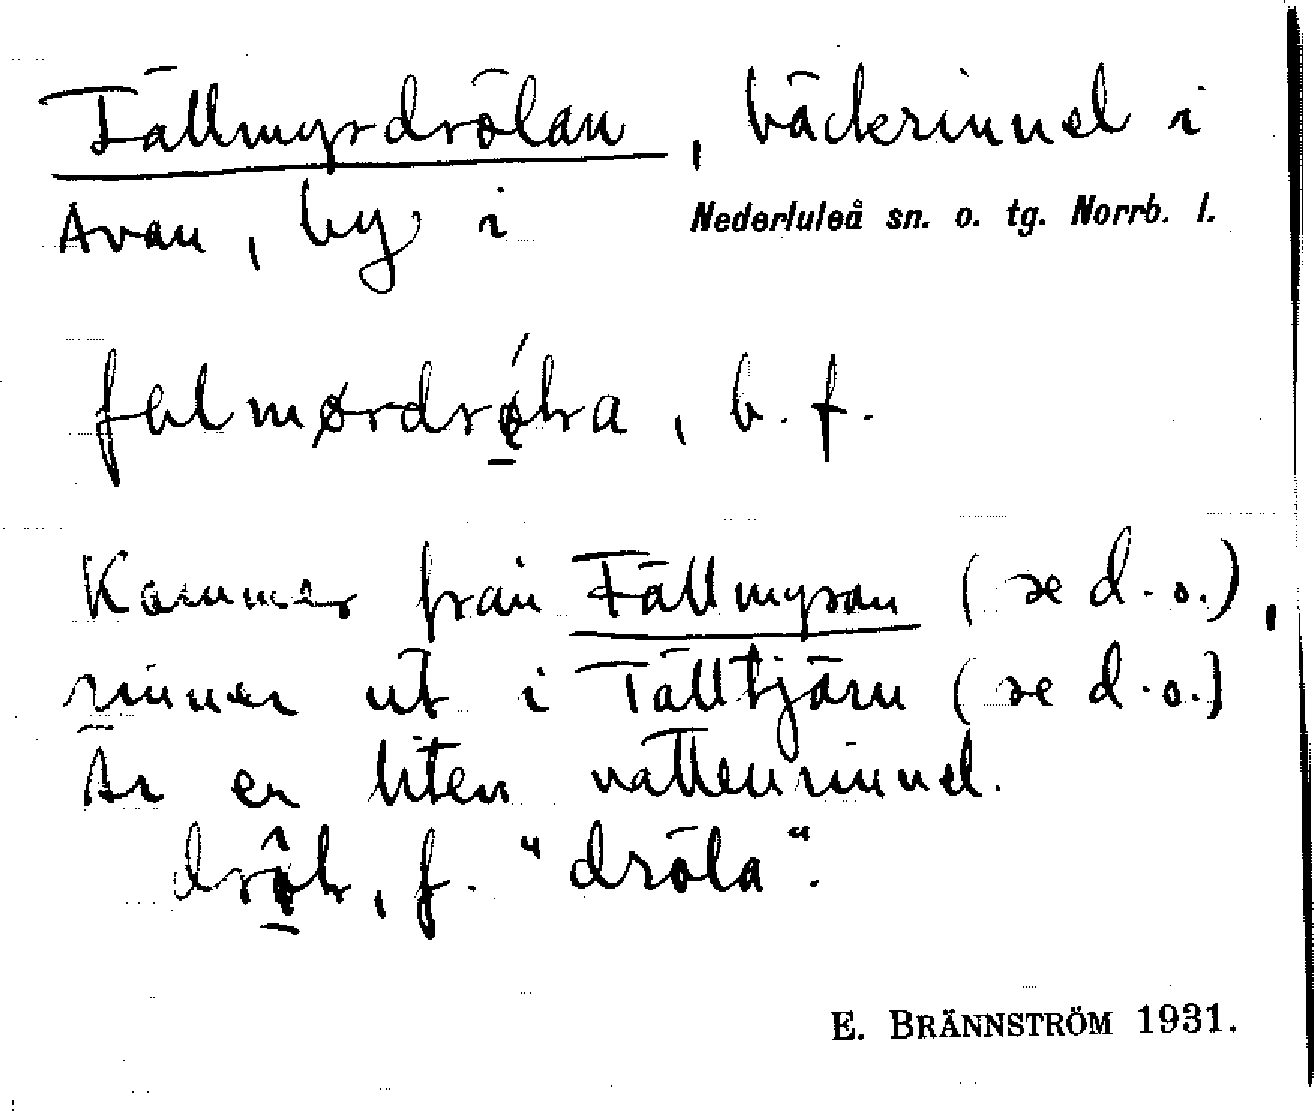 Fällmyrdrölan, bäckrinnel i
Avan, by i Nederluleå sn. o. tg. Norrb. l.
b. f.
Kommer från Fällmyran (se d.o.),
rinner ut i Tälltjärn (se d.o.)
Är en liten vattenrinnel.
f. "dröla".
E. BRÄNNSTRÖM 1931.